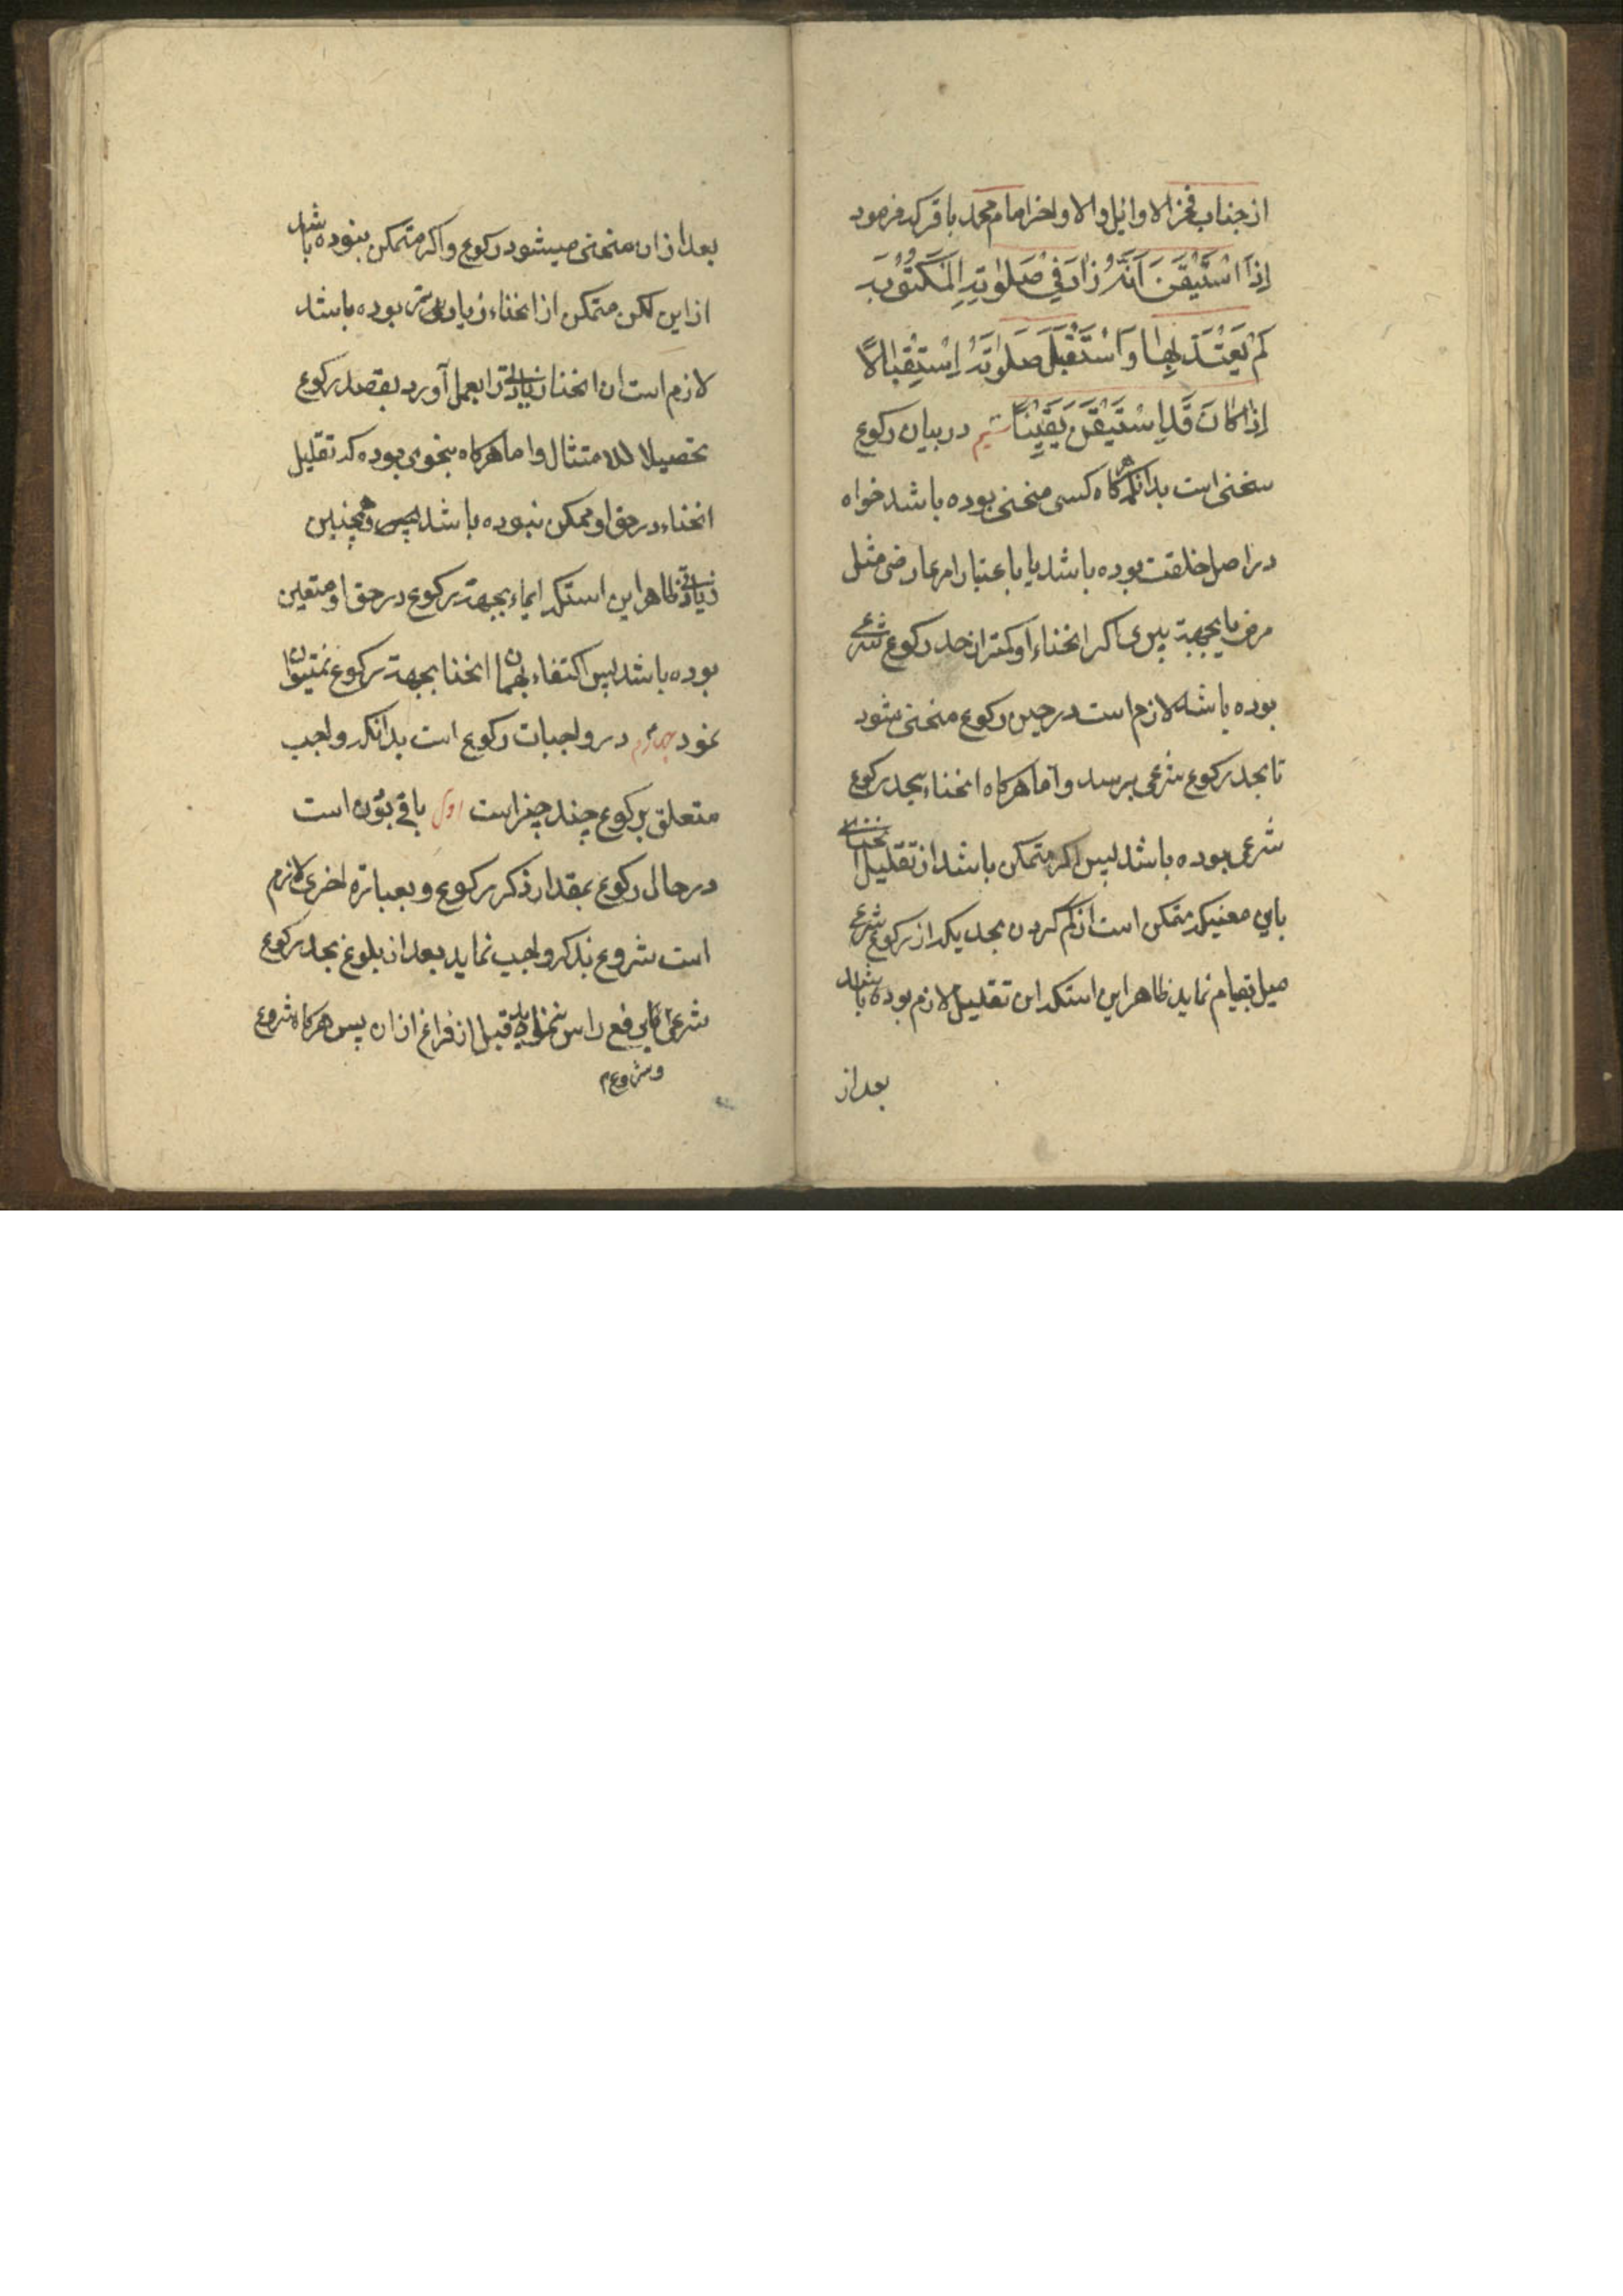 از جناب فخر الاوائل والاواخر امام محمد باقر که فرمود
اِذَا اسْتَيْقَنَ اَنَّهُ زادَ في صَلوتِهِ المَكْتُوبَةِ
لَمْ يَعْتَدَّ بِها وَاسْتَقْبَلَ صَلوتَهُ اِسْتِقْبالًا
اِذا كانَ قَدِ اسْتَيْقَنَ يَقيِنًا سیم در بیان رکوع
منحنی است بدانکه هرکاه کسی منحنی بوده باشد خواه
در اصل خلقت بوده باشد یا باعتبار امر عارضی مثل
مرض یا بجهة پیری اکر انحناء او کمتر از حد رکوع شرعی
بوده باشد لازم است در حین رکوع منحنی شود
تا بحد رکوع شرعی برسد و اما هرکاه انحناء بحد رکوع
شرعی بوده باشد پس اکر متمکن باشد از تقلیل انحناء
باین معنیکه متمکن است از کم کردن بحدیکه از رکوع شرعی
میل بقیام نماید ظاهر این استکه این تقلیل لازم بوده باشد
بعد از
بعد از ان منحنی میشود رکوع و اکر متمکن نبوده باشد
از این لکن متمکن از انحناء زیادتی بوده باشد
لازم است ان انحنا زیادتی را بعمل آورد بقصد رکوع
تحصیلا للامتثال و اما هرکاه بنحوی بوده که تقلیل
انحناء در حق او ممکن نبوده باشد و همچنین
زیادتی ظاهر این استکه ایماء بجهة رکوع در حق او متعین
بوده باشد پس اکتفاء بهمان انحنا بجهة رکوع نمیتوان
نمود چهارم در واجبات رکوع است بدانکه واجب
متعلق برکوع چند چیز است اول باقی بودن است
در حال رکوع بمقدار ذکر رکوع و بعبارة اخری لازم
است شروع بذکر واجب نماید بعد از بلوغ بحد رکوع
شرعی رفع راس ننماید قبل از فراغ از ان پس هرکاه شروع
و شروع م